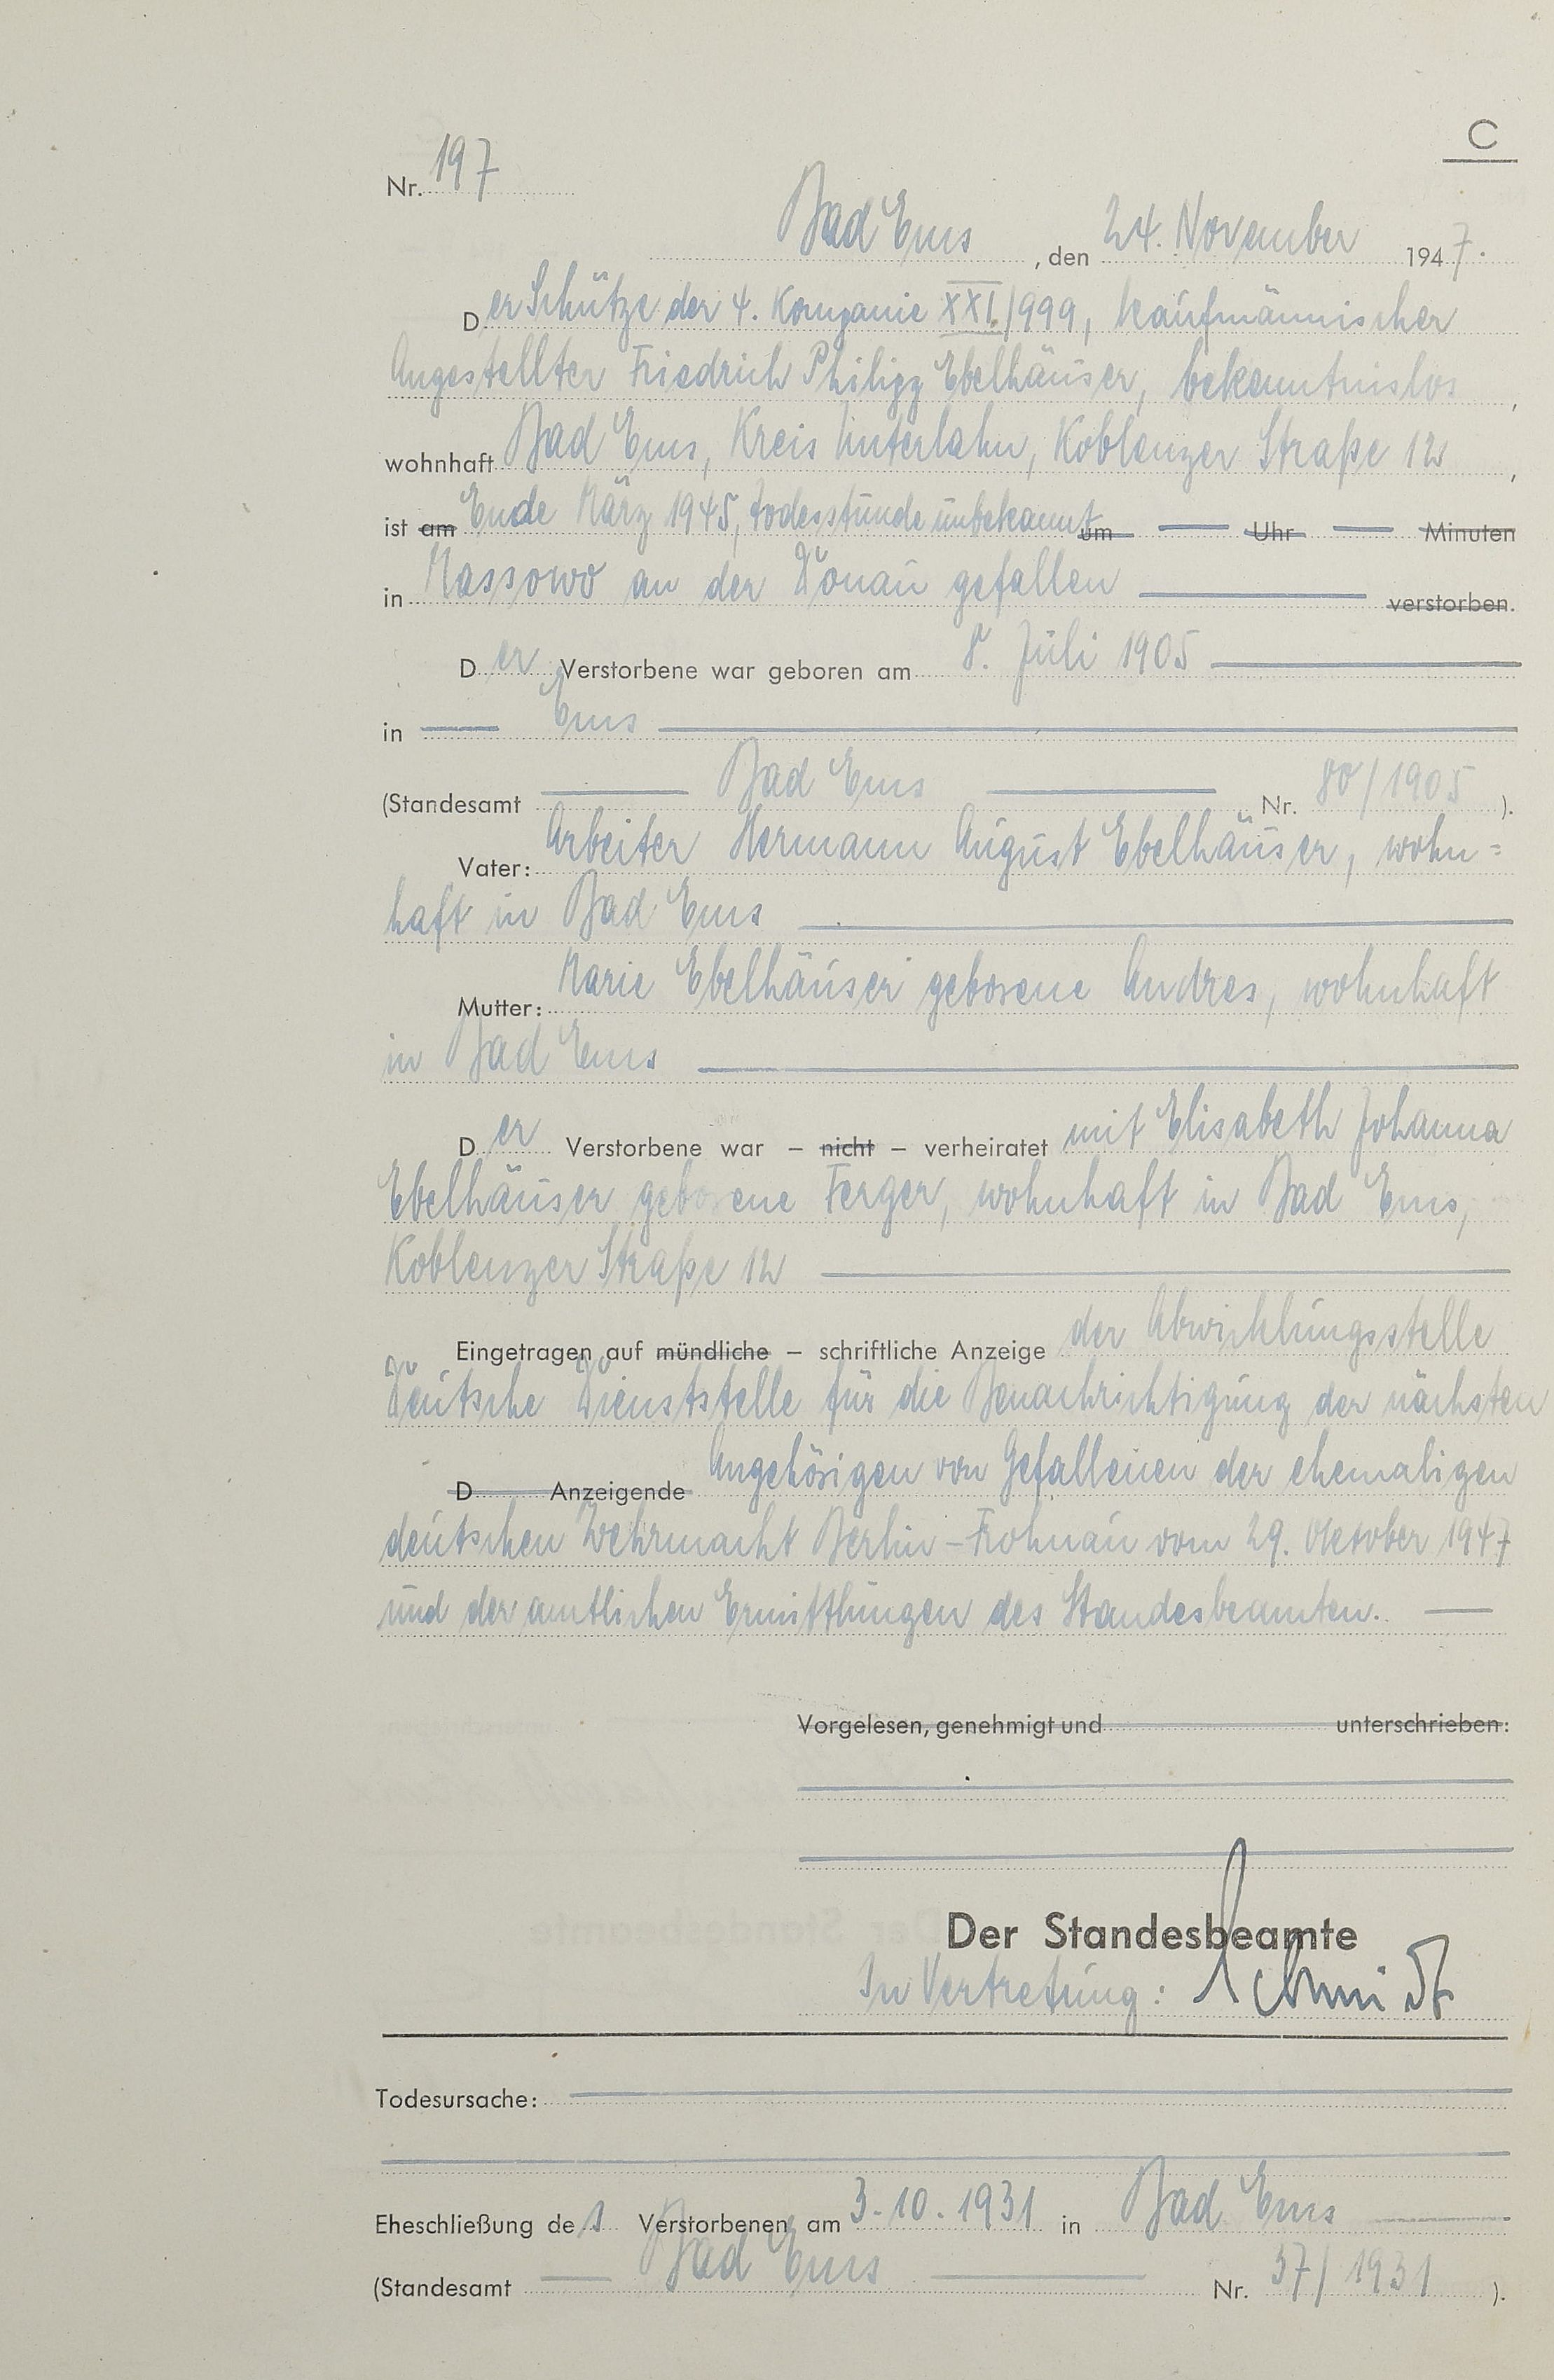 C
Nr. 197
Bad Ems, den 24. November 1947.
Der Schütze der 4. Kompanie XXI./999, kaufmännischer
Angestellter Friedrich Philipp Ebelhäuser, bekenntnislos,
wohnhaft Bad Ems, Kreis Unterlahn, Koblenzer Straße 12,
ist am Ende März 1945, Todesstunde unbekannt um — Uhr — Minuten
in Massowo an der Donau gefallen — verstorben.
Der Verstorbene war geboren am 8. Juli 1905 —
in — Ems —
(Standesamt — Bad Ems — Nr. 80/1905).
Vater: Arbeiter Hermann August Ebelhäuser, wohn=
haft in Bad Ems —
Mutter: Marie Ebelhäuser geborene Andres, wohnhaft
in Bad Ems —
Der Verstorbene war – nicht – verheiratet mit Elisabeth Johanna
Ebelhäuser geborene Ferger, wohnhaft in Bad Ems,
Koblenzer Straße 12 —
Eingetragen auf mündliche – schriftliche Anzeige der Abwicklungsstelle
Deutsche Dienststelle für die Benachrichtigung der nächsten
D Anzeigende Angehörigen von Gefallenen der ehemaligen
deutschen Wehrmacht Berlin-Frohnau vom 29. Oktober 1947
und der amtlichen Ermittlungen des Standesbeamten. —
Vorgelesen, genehmigt und unterschrieben:
Der Standesbeamte
In Vertretung: Schmidt
Todesursache: —
Eheschließung des Verstorbenen am 3.10.1931 in Bad Ems —
(Standesamt — Bad Ems — Nr. 37/1931).